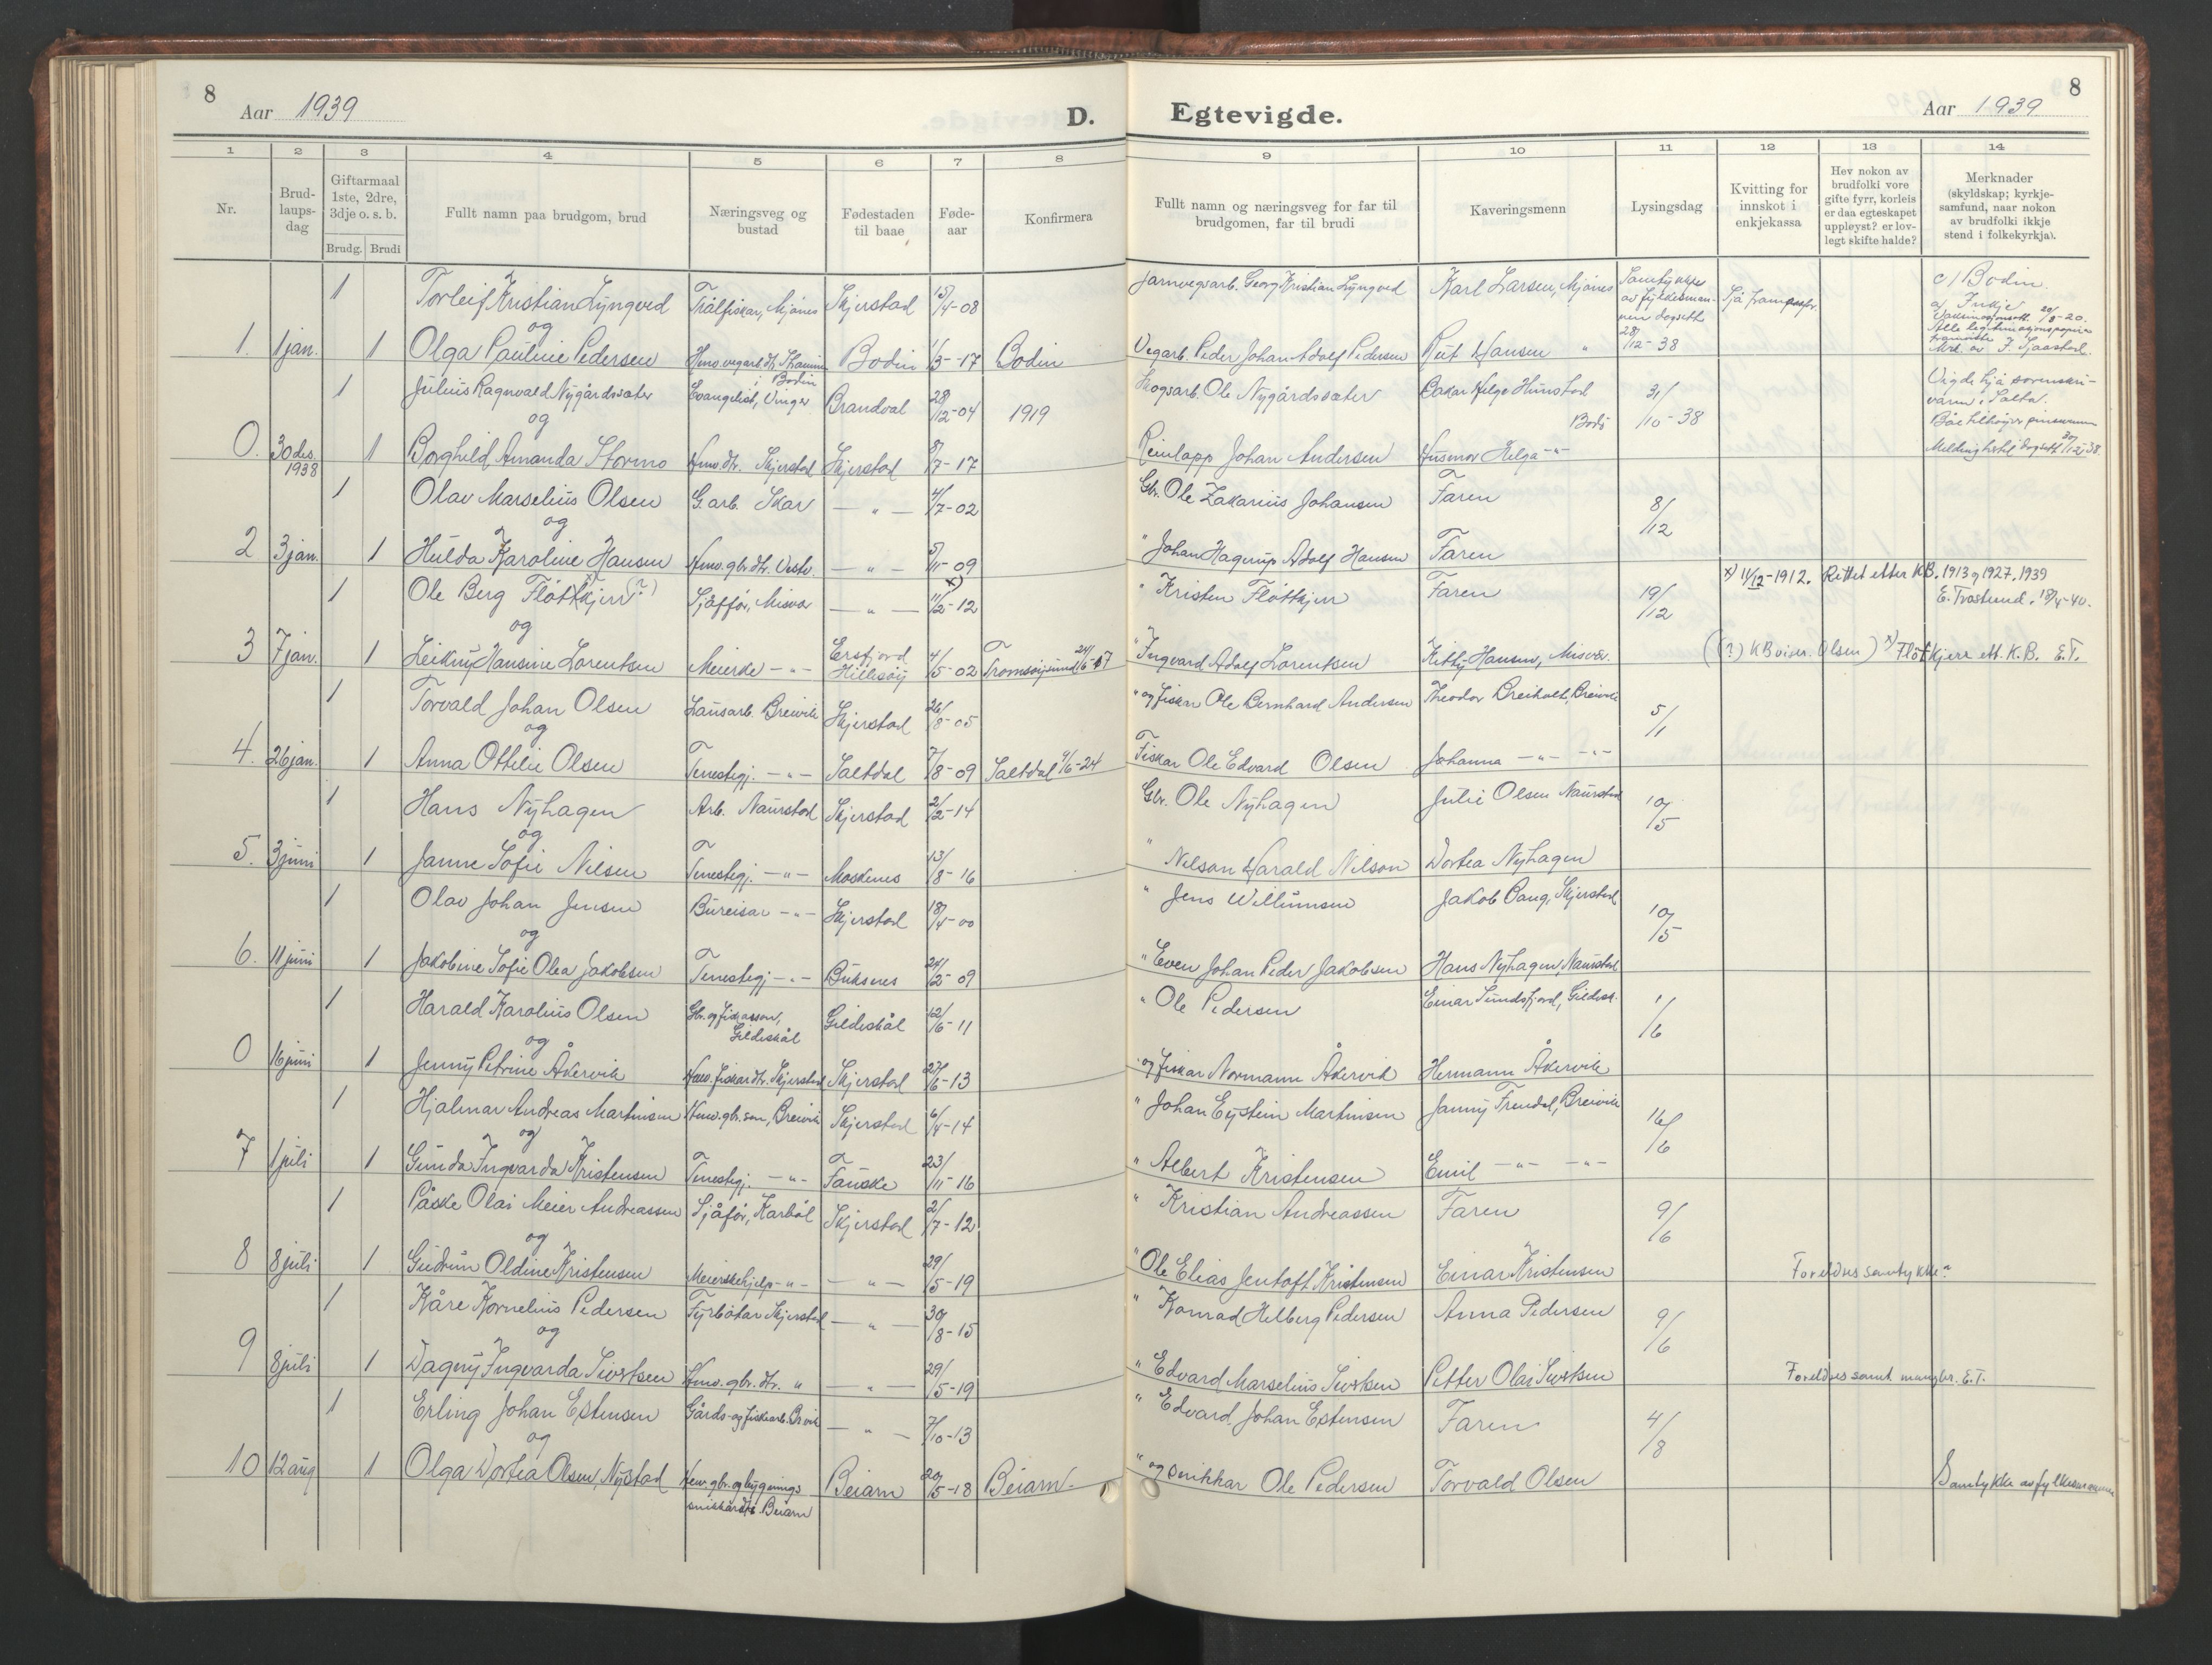 8
Aar 1939
D.
Egtevigde.
Aar 1939
8
1 2 3 4 5 6 7 8 9 10 11 12 13 14
Nr.
Brud-
laups-
dag
Giftarmaal
1ste, 2dre,
3dje o. s. b.
Brudg. Brudi
Fullt namn paa brudgom, brud
Næringsveg og
bustad
Fødestaden
til baae
Føde-
aar
Konfirmera
Fullt namn og næringsveg for far til
brudgomen, far til brudi
Kaveringsmenn
Lysingsdag
Kvitting for
innskot i
enkjekassa
Hev nokon av
brudfolki vore
gifte fyrr, korleis
er daa egteskapet
uppløyst? er lov-
legt skifte halde?
Merknader
(skyldskap; kyrkje-
samfund, naar nokon
av brudfolki ikkje
stend i folkekyrkja).
1 Torleif Kristian Lyngved Trålfiskar, Mjönes Skjerstad 15/4-08 Jarnvegsarb. Georg Kristian Lyngved Karl Larsen, Mjönes Samtykkje
av fylkesman-
nen dagsett
28/12-38
c/ Bodin.
og
1. 1 jan. 1 Olga Pauline Pedersen Bodin 1/3-17 Bodin Vegarb. Peder Johan Adolf Pedersen Rut Hansen "
1 Julius Ragnvald Nygårdssæter Evangelist, Vinger Brandval 28/12-04 1919 Skogsarb. Ole Nygårdssæter Bakar Helge Hunstad
Bodö 31/10-38 Vigde hjå sorenskri-
varen i Salta.
og
0. 30 des.
1938 1 Borghild Amanda Stormo Hmv. dtr. Skjerstad Skjerstad 8/7-17 Reinlapp Johan Andersen Husmor Helga -"-
1 Olav Marselius Olsen G.arb. Skar — " — 4/7-02 Gbr. Ole Zakarius Johansen Faren 8/12
og
2 3 jan. 1 Hulda Karoline Hansen Hmv. gbr. dtr. Vestv. — " — 5/11-09 " Johan Hagrup Adolf Hansen Faren
1 Ole Berg Flöttkjerr (?) Sjåfför, Misvær — " — 11/2-12 x) " Kristen Flöttkjerr Faren 19/12 x) 11/12-1912. Rettet etter KB. 1913 og 1927. 1939
E. Trostrud. 18/4-40.
og
3 7 jan. 1 Leikny Hansine Lorentsen Meierske -"- Ersfjord
Hillesöy 4/5-02 Tromsöysund 24/6-17 " Ingvard Adolf Lorentsen Kitty Hansen, Misvær. ((?) KB viser Olsen) x) Flötkjerr ett. K.B. E.T.
1 Torvald Johan Olsen Lausarb. Breivik Skjerstad 26/8-05 " og fiskar Ole Bernhard Andersen Theodor Breiholt, Breivik 5/1
og
4. 26 jan. 1 Anna Ottilie Olsen Tenestegj. -"- Saltdal 7/8-09 Saltdal 9/6-24 Fiskar Ole Edvard Olsen Johanna -"- -"-
1 Hans Nyhagen Arb. Naurstad Skjerstad 2/2-14 Gbr. Ole Nyhagen Julie Olsen Naurstad 10/5
og
5. 3 juni 1 Janne Sofie Nilsen Tenestegj. -"- Moskenes 13/8-16 " Nilson Harald Nilson Dortea Nyhagen
1 Olav Johan Jensen Bureisar -"- Skjerstad 18/4-00 " Jens Willumsen Jakob Vang, Skjerstad 10/5
og
6. 11 juni 1 Jakobine Sofie Olea Jakobsen Tenestegj -"- Buksnes 24/2-09 " Even Johan Peder Jakobsen Hans Nyhagen Naurstad
1 Harald Karolius Olsen Gbr. og fiskarson,
Gildeskål Gildeskål 12/6-11 " Ole Pedersen Einar Sundsfjord, Gildesk. 1/6
og
0 16 juni 1 Jenny Petrine Åkervik Hmv. fiskardtr. Skjerstad Skjerstad 27/6-13 " og fiskar Normann Åkervik Hermann Åkervik
1 Hjalmar Andreas Martinsen Hmv. gbr. son, Breivik Skjerstad 6/4-14 " Johan Eystein Martinsen Jenny Frendal, Breivik 16/6
og
7 1 juli 1 Gunda Ingvarda Kristensen Tenestegj. -"- Fauske 23/11-16 " Albert Kristensen Emil -"- -"-
1 Påske Olai Meier Andreassen Sjåfór, Karböl Skjerstad 2/7-12 " Kristian Andreassen Faren 9/6
og
8 8 juli 1 Gudrun Oldine Kristensen Meierskehjelp -"- — " — 29/5-19 " Ole Elias Jentoft Kristensen Einar Kristensen Foreldres samtykke?
1 Kåre Kornelius Pedersen Fyrbötar Skjerstad — " — 30/8-15 " Konrad Helberg Pedersen Anna Pedersen 9/6
og
9 8 juli 1 Dagny Ingvarda Sivertsen Hmv. gbr. dtr. " — " — 29/5-19 " Edvard Marselius Sivertsen Petter Olai Sivertsen Foreldres samt. manglar. E.T.
1 Erling Johan Estensen Gårds- og fiskearb. Brvik — " — 7/10-13 " Edvard Johan Estensen Faren 4/8
og
10 12 aug 1 Olga Dortea Olsen, Nystad Hmv. gbr. og bygnings
snikkardtr. Beiarn Beiarn 20/5-18 Beiarn " og snikkar Ole Pedersen Torvald Olsen Samtykke av fylkesmannen